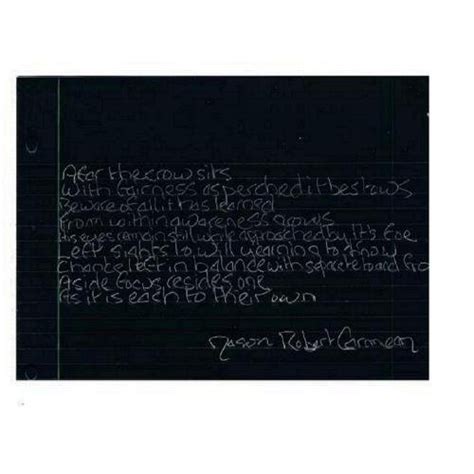 Afar the crow sits
With fairness as perched it bestows
Beware of all it has learned
From within awareness grows
His eyes remain still well approached by it's foe
Left sights to will yearning to know
Chance left in balance with separate board
Aside focus resides one
As it is each to their own
Mason Robert